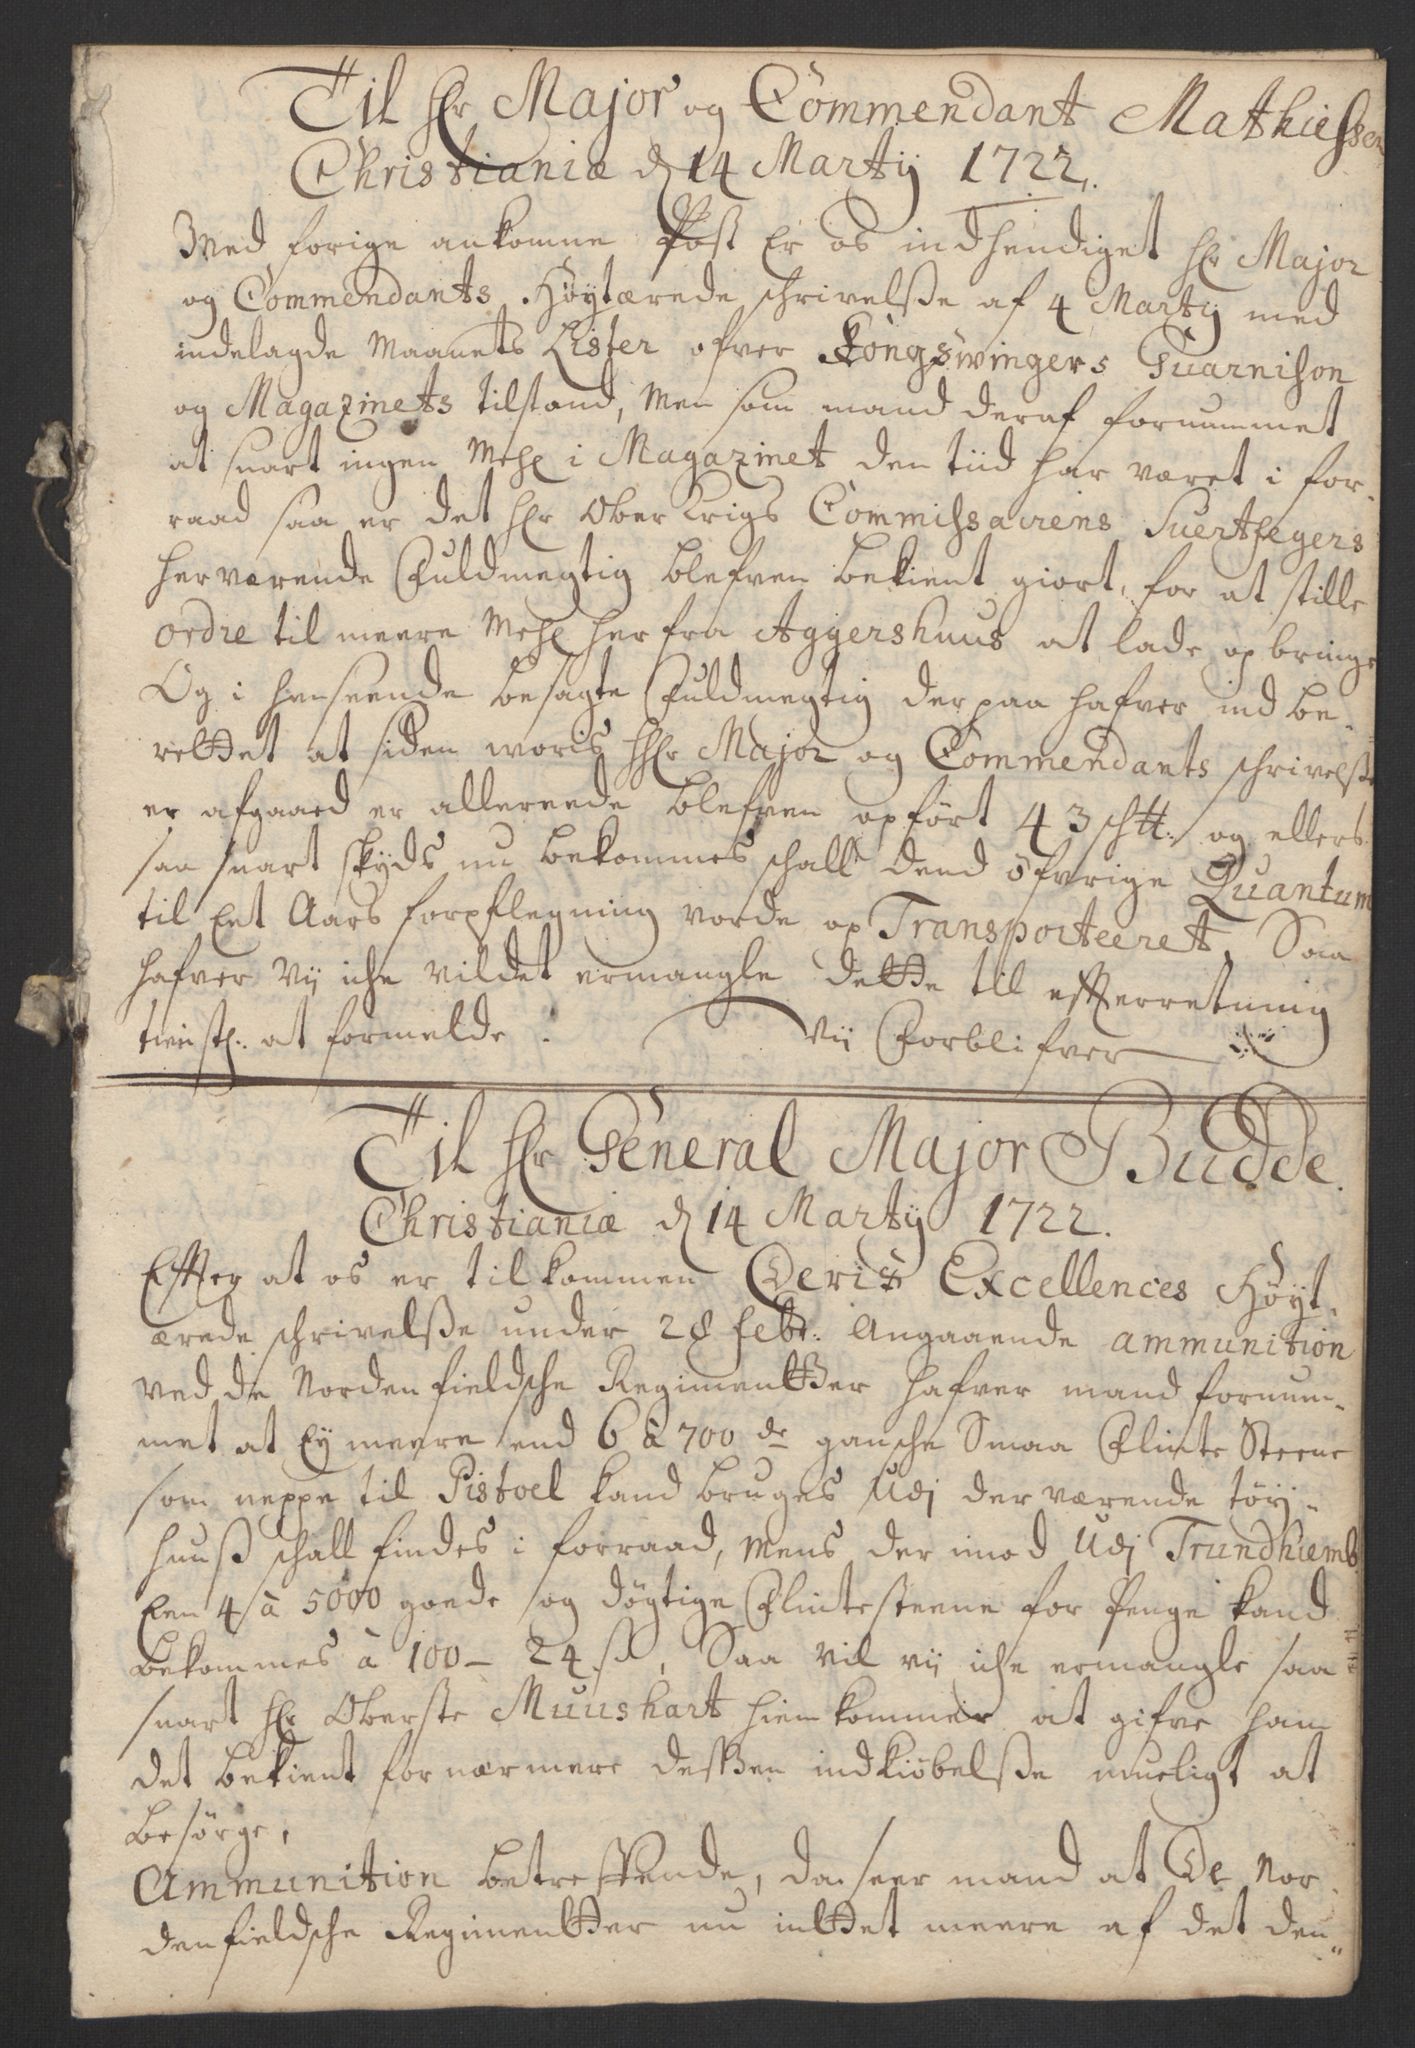 Til Hr Major og Commendant Mathiessen
Christiania d 14 Martij 1722.
Med forige ankomne Post Er os indhendiget Hr Major
og Commendants Høytærede schrivelße af 4 Martij med
indelagde Maanets Lister ofver Kongswingers Guarnison
og Magazinets tilstand, Men som mand deraf fornummet
at snart ingen Mehl i Magazinet den tiid har været i for-
raad saa er det Hr Ober Krigs Commissairens Suertfegers
herværende Fuldmegtig blefven bekient giort, for at stille
ordre til meere Mehl her fra Aggershuus at lade op bringe
Og i henseende besagte Fuldmegtig derpaa hafver ind be-
rettet at siden woris Hr Major og Commendants schrivelße
er afgaaed er allereede blefven opført 43 sch℔: og ellers
saa snart skyds nu bekommes schall dend öfvrige Quantum
til Eet Aars forpflegning vorde op Transporteeret, Saa
hafver Vij iche vildet ermangle dette til efterretning
tienstl: at formelde. Vij Forblifver
Til Hr General Major Budde.
Christiania d 14 Martij 1722.
Efter at os er tilkommen Deris Excellences Høyt-
ærede schrivelße under 28 febr: Angaaende ammunition
ved de Nordenfieldsche Regimentter hafver mand fornum-
met at Eij meere end 6 à 700 de gansche Smaa Flinte Steene
som neppe til Pistoel kand bruges Udj derværende tøy-
huuß schall findes i forraad, Mens der imod Udj Trundhiemb
Een 4 à 5000 goede og døgtige Flintesteene for Penge kand
bekommes à 100 - 24 ß, Saa vil vij iche ermangle saa
snart Hr Oberste Muushart hiem kommer at gifve ham
det bekient for nærmere desßen indkiöbelße mueligt at
besørge,
Ammunition betreffende, da seer mand at De Nor-
denfieldsche Regimentter nu inttet meere af det den-